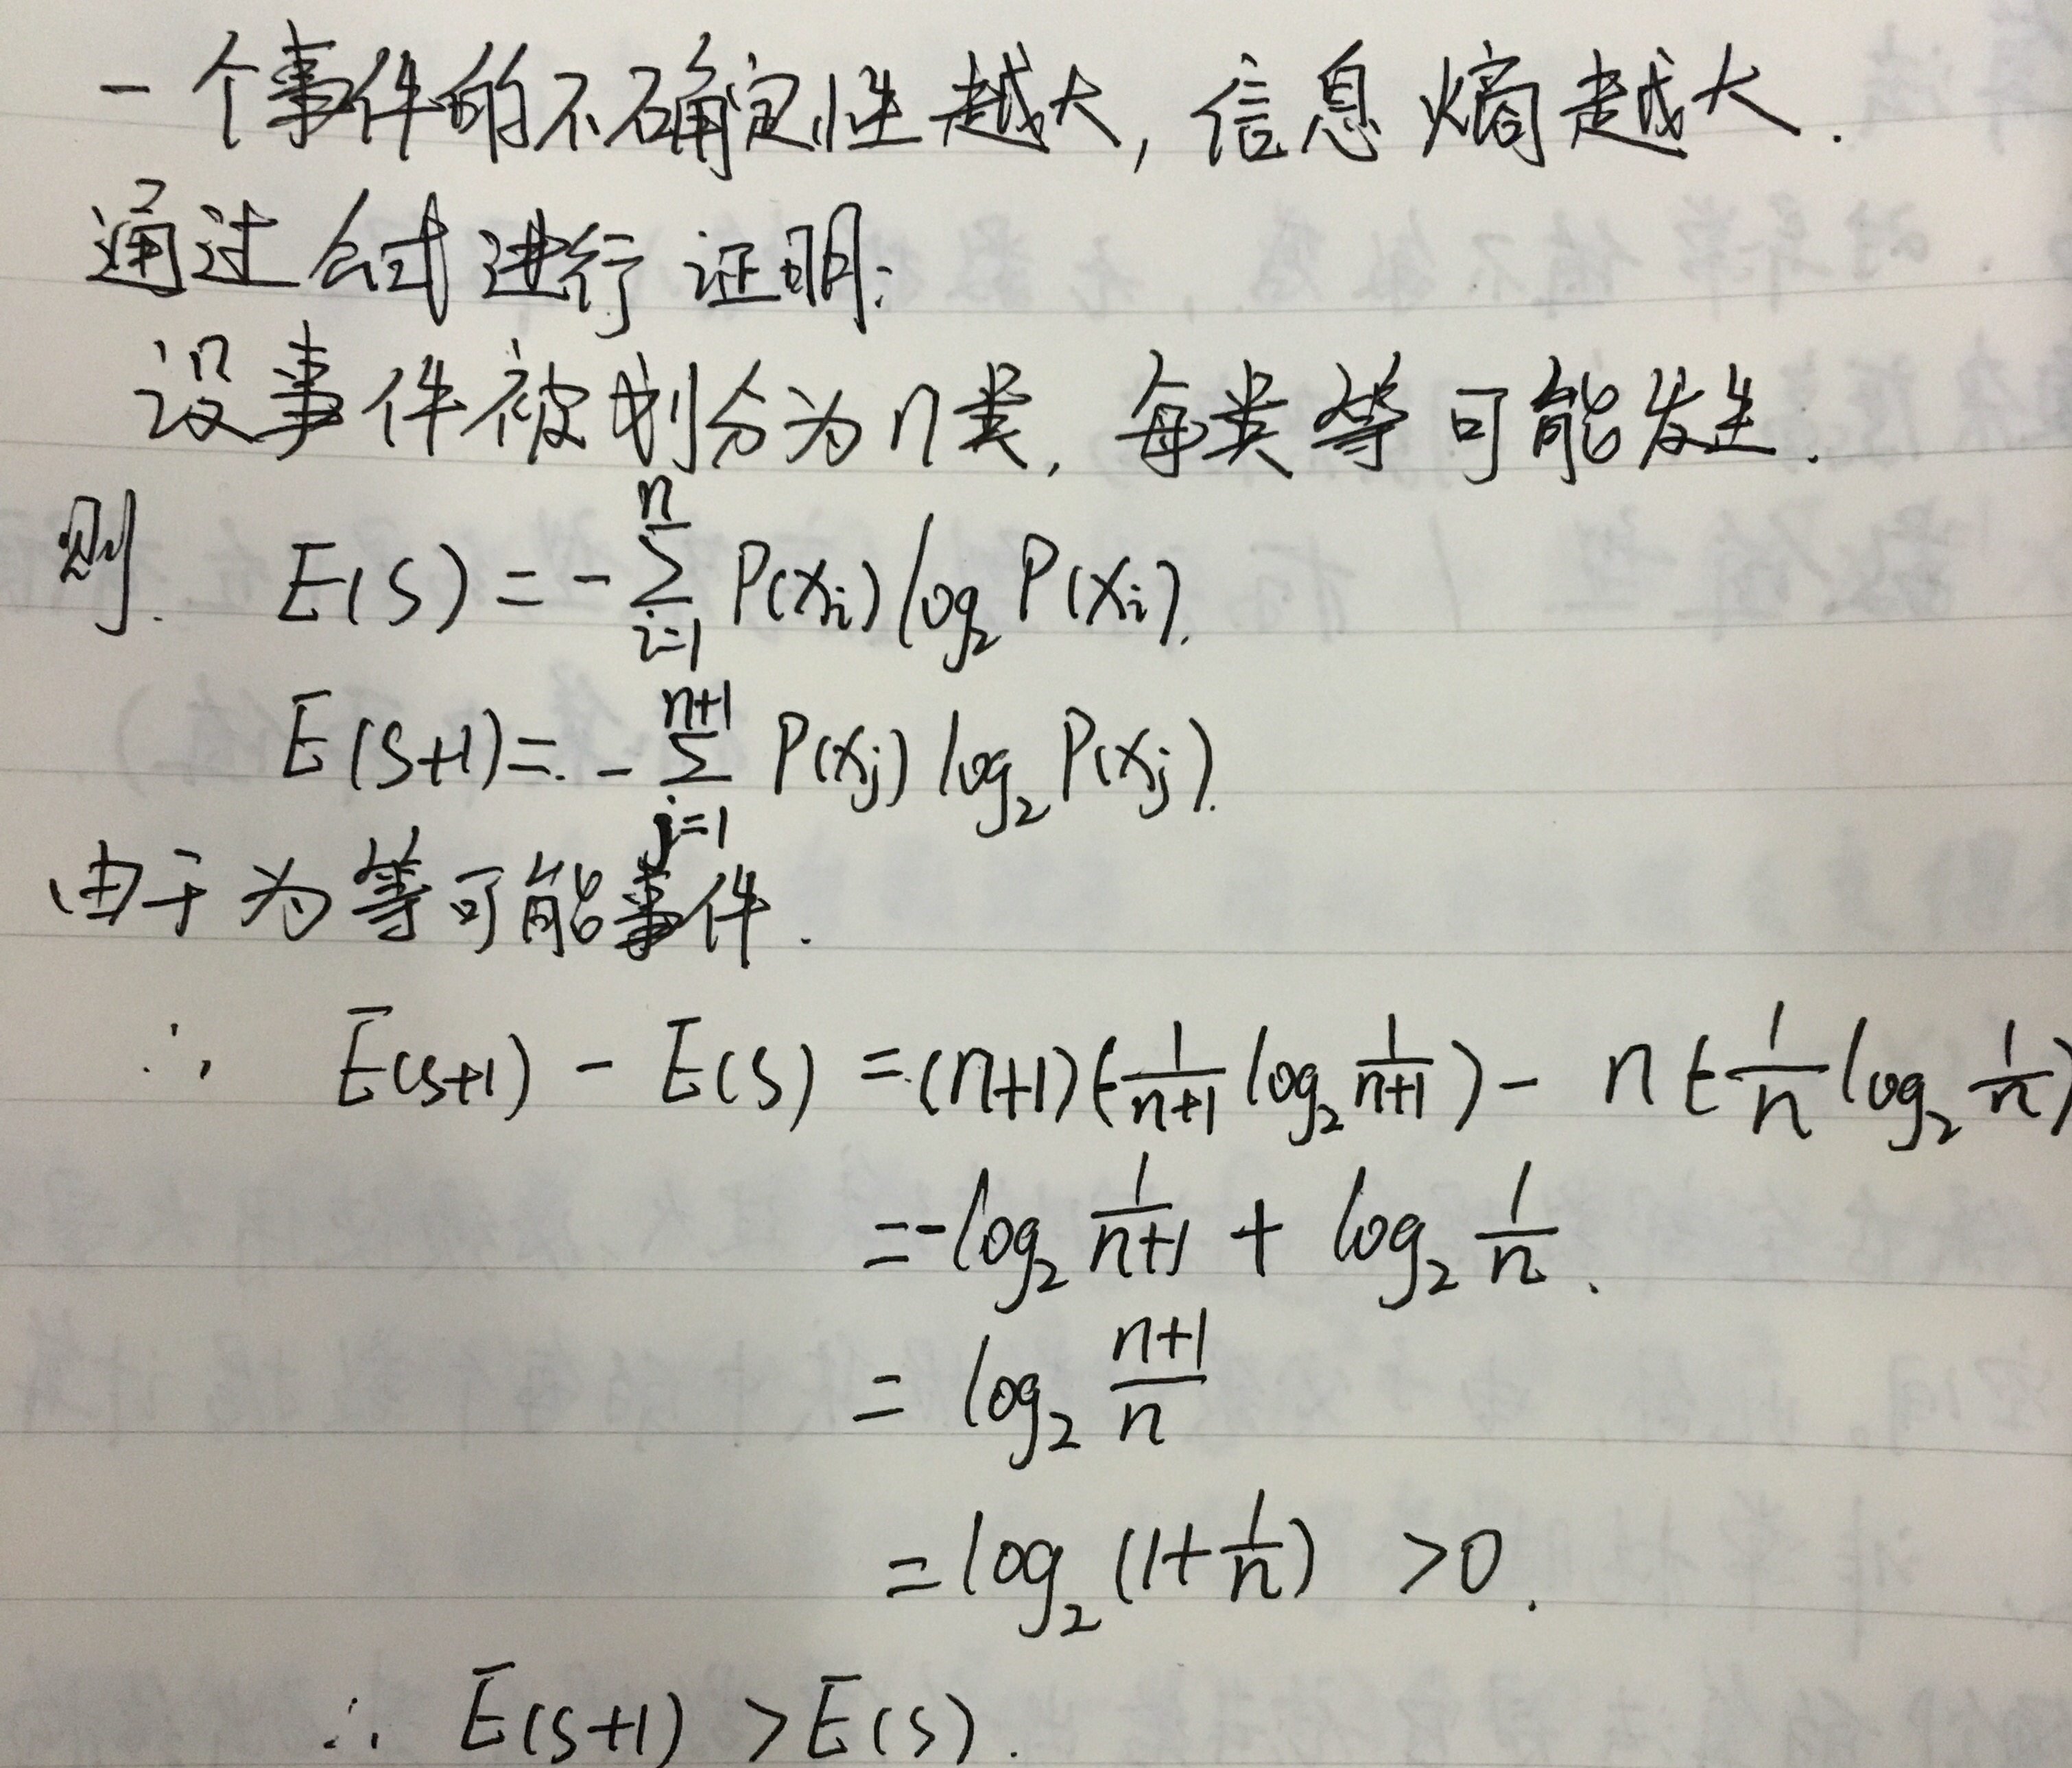 一个事件的不确定性越大, 信息熵越大.
通过公式进行证明:
设事件被划分为n类, 每类等可能发生.
则. E(S) = -∑_{i=1}^{n} P(x_i) log_2 P(x_i).
E(S+1) = -∑_{j=1}^{n+1} P(x_j) log_2 P(x_j).
由于为等可能事件.
∴ E(S+1) - E(S) = (n+1)(-\frac{1}{n+1} log_2 \frac{1}{n+1}) - n(-\frac{1}{n} log_2 \frac{1}{n})
= -log_2 \frac{1}{n+1} + log_2 \frac{1}{n}.
= log_2 \frac{n+1}{n}
= log_2 (1+\frac{1}{n}) >0.
∴ E(S+1) > E(S).